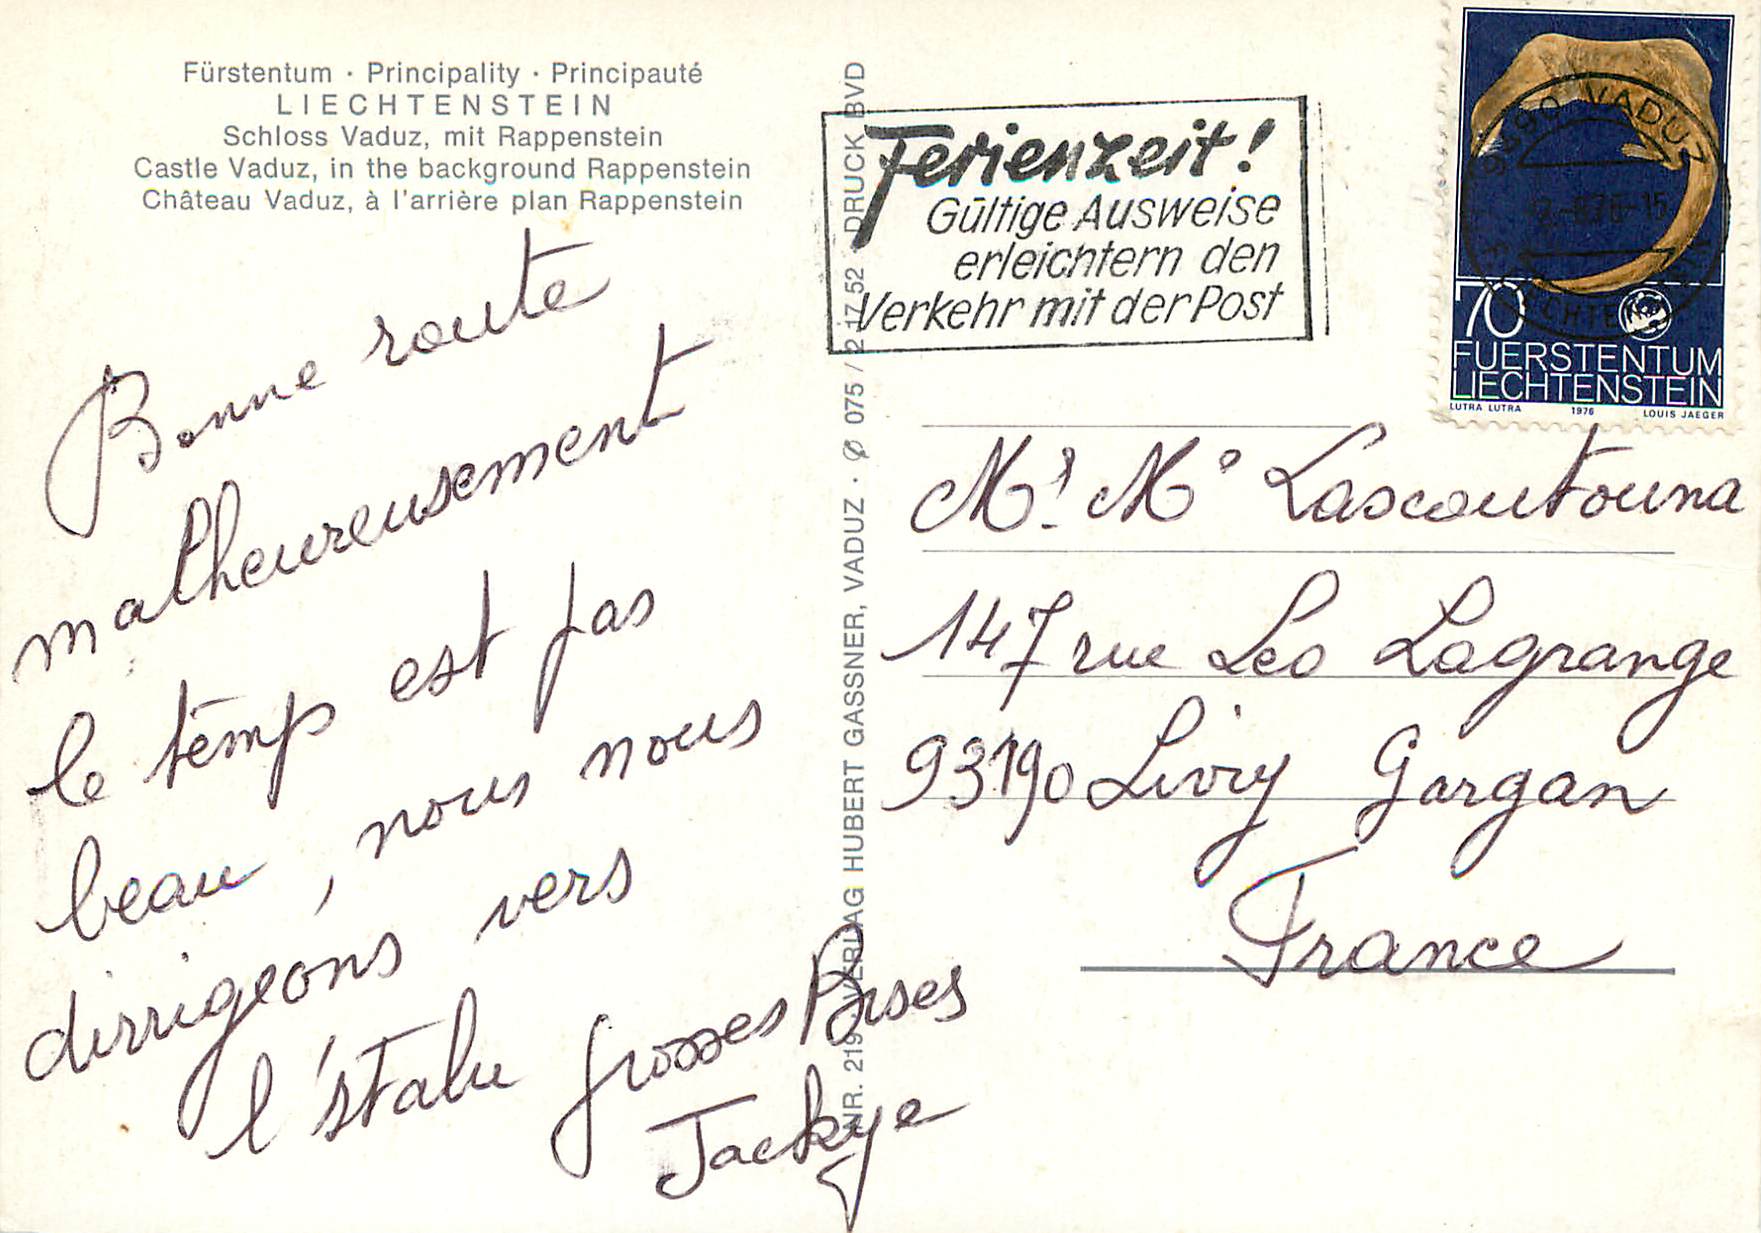 Fürstentum · Principality · Principauté
LIECHTENSTEIN
Schloss Vaduz, mit Rappenstein
Castle Vaduz, in the background Rappenstein
Château Vaduz, à l'arrière plan Rappenstein
Bonne route
malheureusement
le temps est pas
beau, nous nous
dirrigeons vers
l'stalie grosses Bises
Jackye
NR. 219 VERLAG HUBERT GASSNER, VADUZ · 075 / 2 17 52 DRUCK BVD
Ferienzeit!
Gültige Ausweise
erleichtern den
Verkehr mit der Post
9490 VADUZ
-15
LIECHTENSTEIN
70
FUERSTENTUM
LIECHTENSTEIN
LUTRA LUTRA 1976 LOUIS JAEGER
Mr. Me Lascoutouna
147 rue Leo Lagrange
93190 Livry Gargan
France